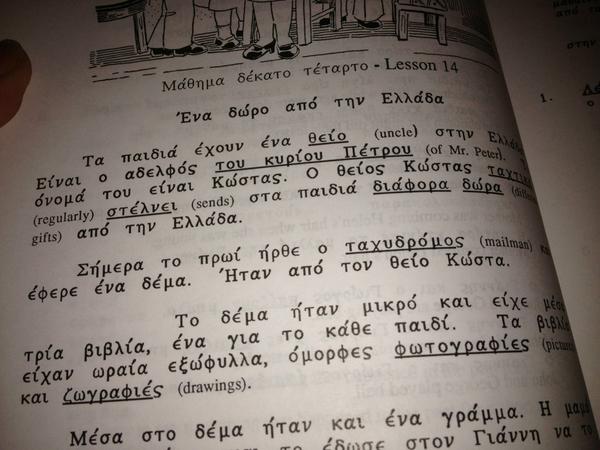 Μάθημα δέκατο τέταρτο - Lesson 14
Ένα δώρο από την Ελλάδα
Τα παιδιά έχουν ένα θείο (uncle) στην
Είναι ο αδελφός του κυρίου Πέτρου (of Mr. Peter).
όνομά του είναι Κώστας. Ο θείος Κώστας
(regularly) στέλνει (sends) στα παιδιά διάφορα δώρα
gifts) από την Ελλάδα.
Σήμερα το πρωί ήρθε ο ταχυδρόμος (mailman)
έφερε ένα δέμα. Ήταν από τον θείο Κώστα.
Το δέμα ήταν μικρό και είχε
τρία βιβλία, ένα για το κάθε παιδί. Τα
είχαν ωραία εξώφυλλα, όμορφες φωτογραφίες
και ζωγραφιές (drawings).
Μέσα στο δέμα ήταν και ένα γράμμα. Η
το έδωσε στον Γιάννη να το
1.